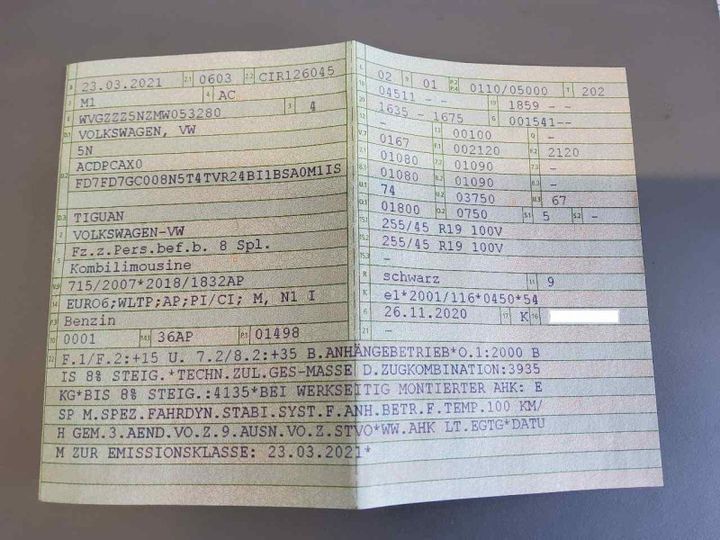 B 23.03.2021 2.1 0603 2.2 CIR126045
J M1 4 AC
E WVGZZZ5NZMW053280 3 4
D.1 VOLKSWAGEN, VW
5N
D.2 ACDPCAX0
FD7FD7GC008N5T4TVR24BI1BSA0M1IS
D.3 TIGUAN
2 VOLKSWAGEN-VW
5 Fz.z.Pers.bef.b. 8 Spl.
Kombilimousine
715/2007*2018/1832AP
14 EURO6;WLTP;AP;PI/CI; M, N1 I
P.3 Benzin
10 0001 14.1 36AP P.1 01498
L 02 9 01 P.2 P.4 0110/05000 T 202
18 04511 - - 19 1859 - -
20 1635 - 1675 G 001541--
12 - 13 00100 Q -
V.7 0167 F.1 002120 F.2 2120
7.1 01080 7.2 01090 7.3 -
8.1 01080 8.2 01090 8.3 -
U.1 74 U.2 03750 U.3 67
O.1 01800 O.2 0750 S.1 5 S.2 -
15.1 255/45 R19 100V
15.2 255/45 R19 100V
15.3 -
R schwarz 11 9
K e1*2001/116*0450*54
6 26.11.2020 17 K 16
21 -
22 F.1/F.2:+15 U. 7.2/8.2:+35 B.ANHÄNGEBETRIEB*O.1:2000 B
IS 8% STEIG.*TECHN.ZUL.GES-MASSE D.ZUGKOMBINATION:3935
KG*BIS 8% STEIG.:4135*BEI WERKSEITIG MONTIERTER AHK: E
SP M.SPEZ.FAHRDYN.STABI.SYST.F.ANH.BETR.F.TEMP.100 KM/
H GEM.3.AEND.VO.Z.9.AUSN.VO.Z.STVO*WW.AHK LT.EGTG*DATU
M ZUR EMISSIONSKLASSE: 23.03.2021*